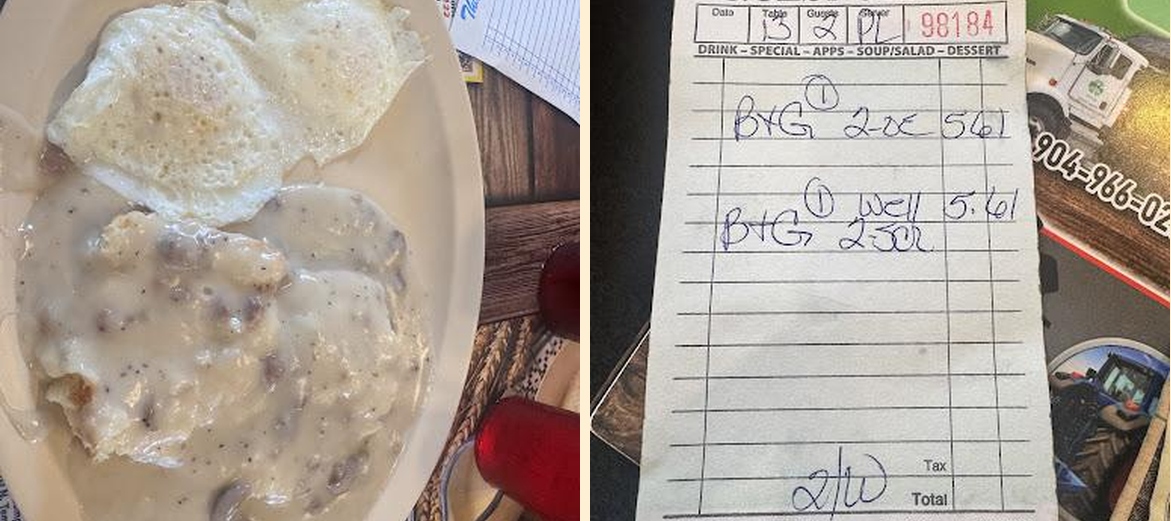 Date Table Guests Server
13 2 PL 98184
DRINK – SPECIAL – APPS – SOUP/SALAD – DESSERT
①
B+G 2-OE 5.61
① well 5.61
B+G 2-SCR
2/W
Tax
Total
904-966-02